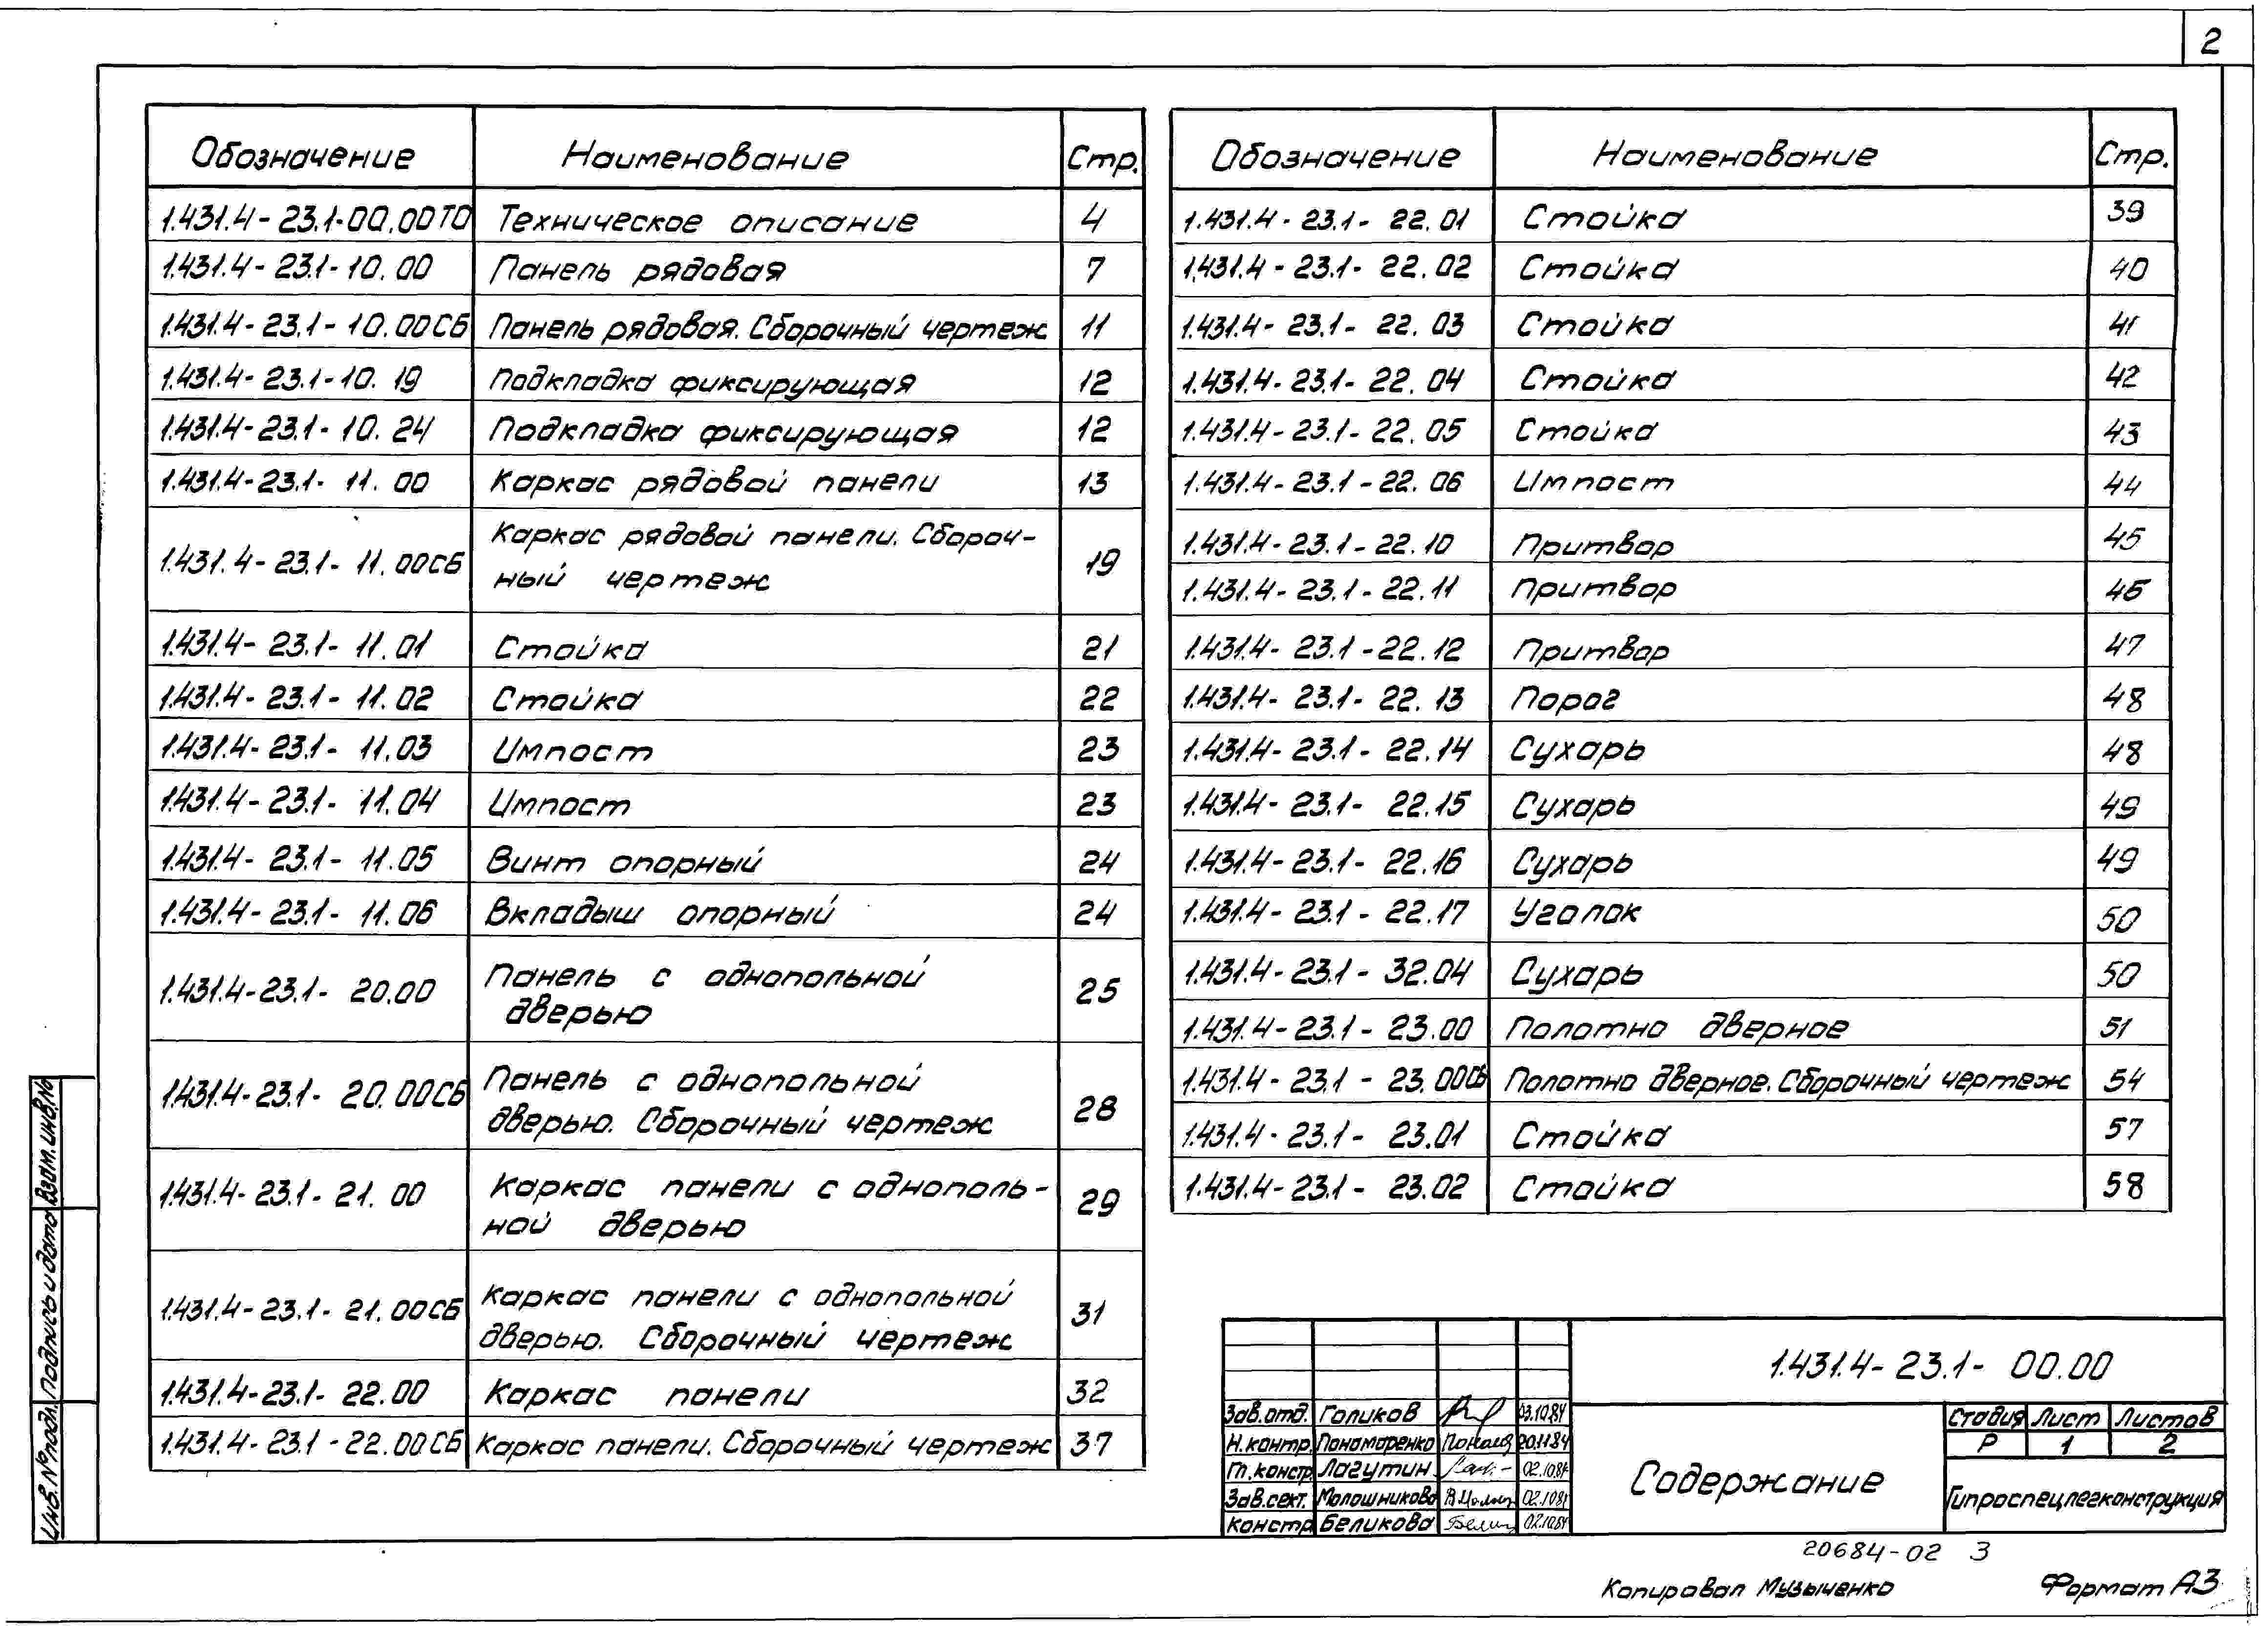 2
Обозначение Наименование Стр.
1.431.4-23.1-00.00ТО Техническое описание 4
1.431.4-23.1-10.00 Панель рядовая 7
1.431.4-23.1-10.00СБ Панель рядовая. Сборочный чертеж 11
1.431.4-23.1-10.19 Подкладка фиксирующая 12
1.431.4-23.1-10.24 Подкладка фиксирующая 12
1.431.4-23.1-11.00 Каркас рядовой панели 13
1.431.4-23.1-11.00СБ Каркас рядовой панели. Сбороч-
ный чертеж 19
1.431.4-23.1-11.01 Стойка 21
1.431.4-23.1-11.02 Стойка 22
1.431.4-23.1-11.03 Импост 23
1.431.4-23.1-11.04 Импост 23
1.431.4-23.1-11.05 Винт опорный 24
1.431.4-23.1-11.06 Вкладыш опорный 24
1.431.4-23.1-20.00 Панель с однопольной
дверью 25
1.431.4-23.1-20.00СБ Панель с однопольной
дверью. Сборочный чертеж 28
1.431.4-23.1-21.00 Каркас панели с однополь-
ной дверью 29
1.431.4-23.1-21.00СБ Каркас панели с однопольной
дверью. Сборочный чертеж 31
1.431.4-23.1-22.00 Каркас панели 32
1.431.4-23.1-22.00СБ Каркас панели. Сборочный чертеж 37
Обозначение Наименование Стр.
1.431.4-23.1-22.01 Стойка 39
1.431.4-23.1-22.02 Стойка 40
1.431.4-23.1-22.03 Стойка 41
1.431.4-23.1-22.04 Стойка 42
1.431.4-23.1-22.05 Стойка 43
1.431.4-23.1-22.06 Импост 44
1.431.4-23.1-22.10 Притвор 45
1.431.4-23.1-22.11 Притвор 46
1.431.4-23.1-22.12 Притвор 47
1.431.4-23.1-22.13 Порог 48
1.431.4-23.1-22.14 Сухарь 48
1.431.4-23.1-22.15 Сухарь 49
1.431.4-23.1-22.16 Сухарь 49
1.431.4-23.1-22.17 Уголок 50
1.431.4-23.1-32.04 Сухарь 50
1.431.4-23.1-23.00 Полотно дверное 51
1.431.4-23.1-23.00СБ Полотно дверное. Сборочный чертеж 54
1.431.4-23.1-23.01 Стойка 57
1.431.4-23.1-23.02 Стойка 58
Инв. № подл. Подпись и дата Взам. инв. №
1.431.4-23.1-00.00
Зав.отд. Голиков 03.10.84
Н.контр. Пономаренко 20.11.84
Гл.констр. Лагутин 02.10.84
Зав.сект. Молошникова 02.10.84
Констр. Беликова 02.10.84
Содержание
Стадия Лист Листов
Р 1 2
Гипроспецлегконструкция
20684-02 3
Копировал Музыченко Формат А3